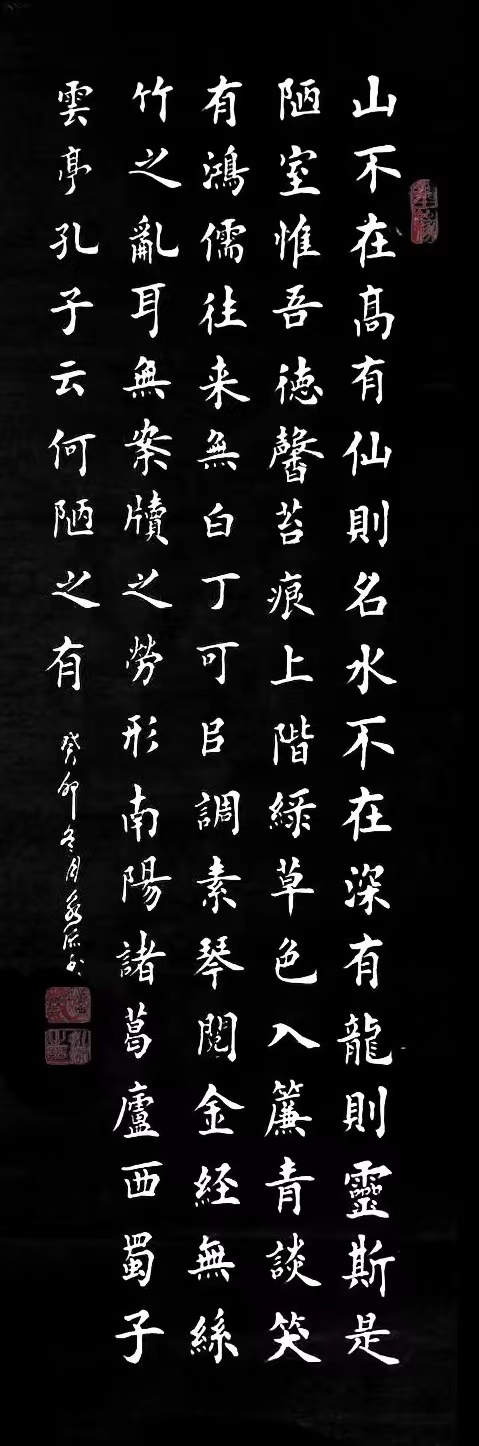 山不在高有仙則名水不在深有龍則靈斯是
陋室惟吾徳馨苔痕上階綠草色入簾青談笑
有鴻儒往来無白丁可㠯調素琴閱金経無絲
竹之亂耳無案牘之勞形南陽諸葛廬西蜀子
雲亭孔子云何陋之有
癸卯冬月